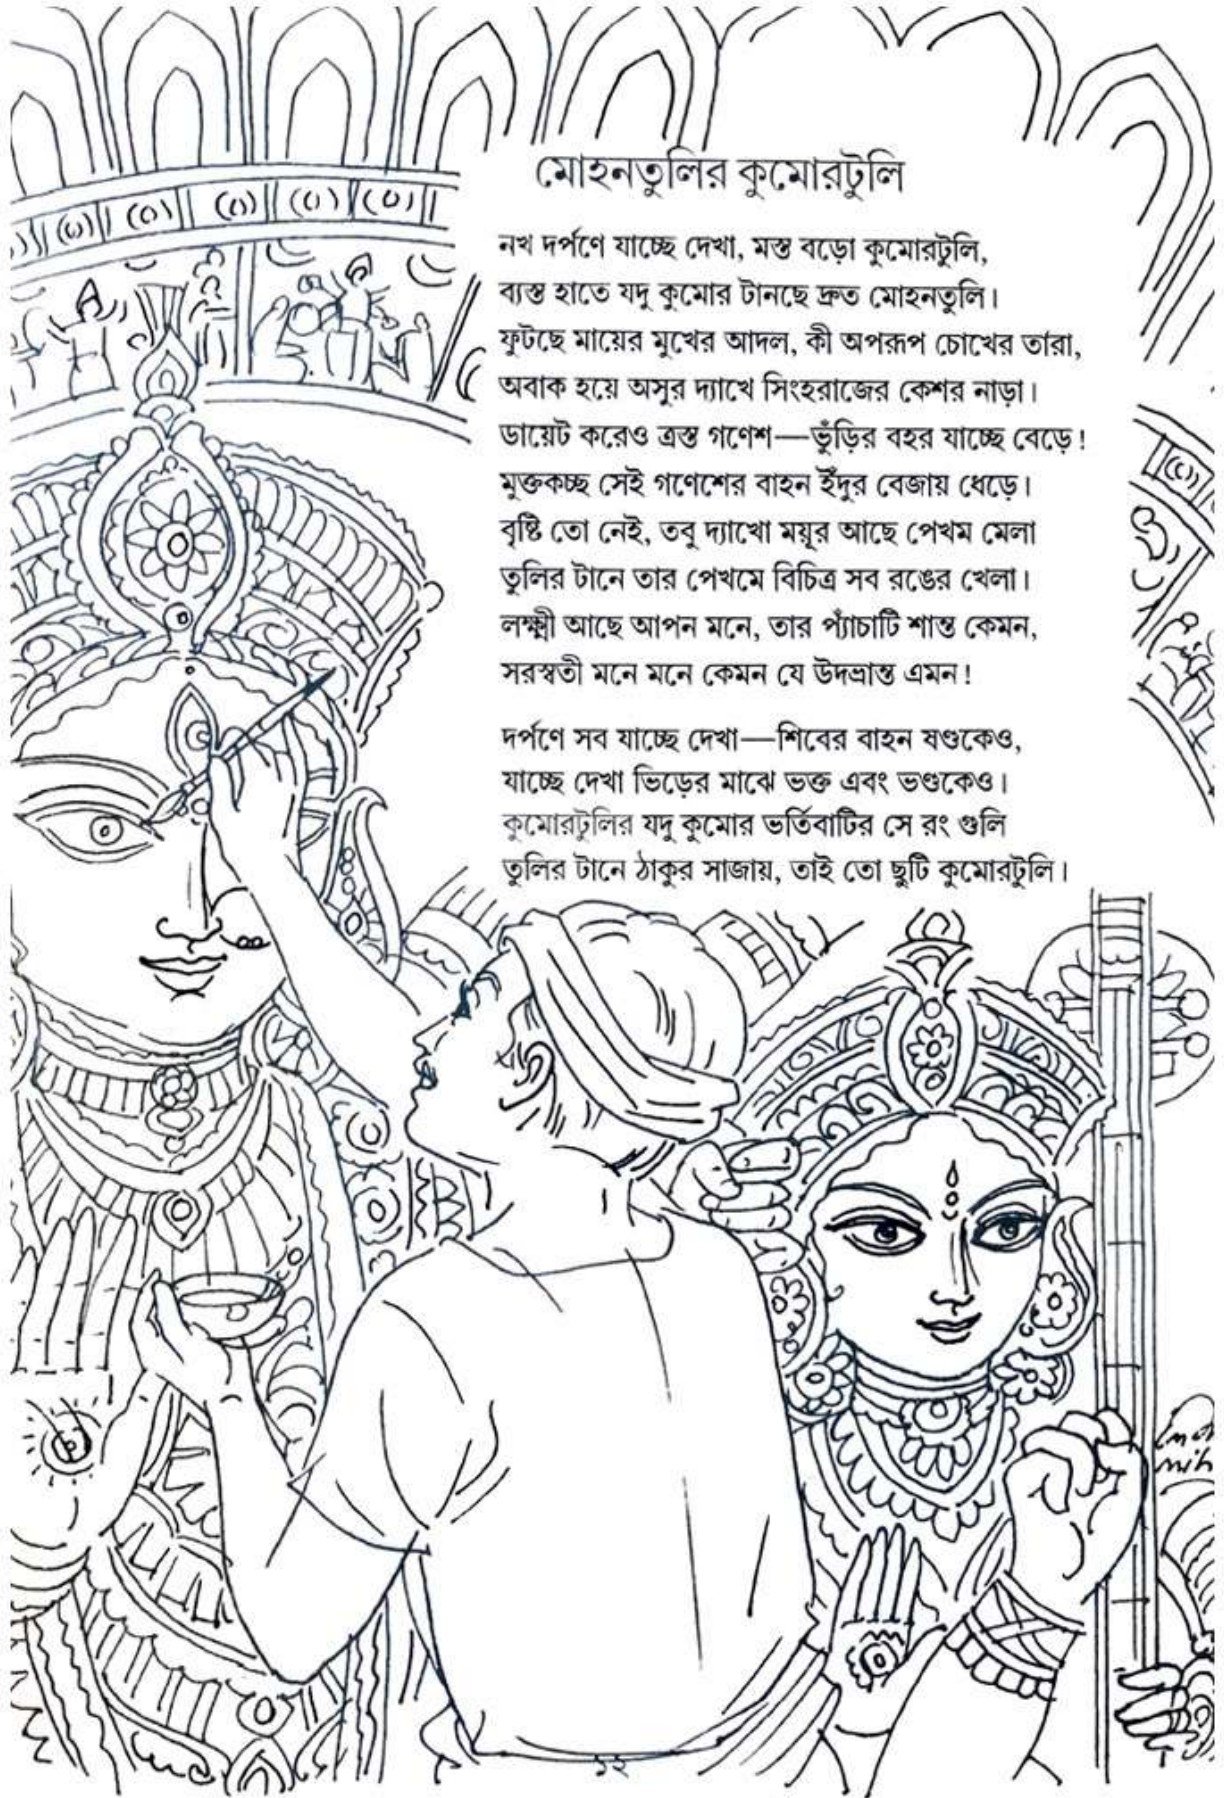 মোহনতুলির কুমোরটুলি
নখ দর্পণে যাচ্ছে দেখা, মস্ত বড়ো কুমোরটুলি,
ব্যস্ত হাতে যদু কুমোর টানছে দ্রুত মোহনতুলি।
ফুটছে মায়ের মুখের আদল, কী অপরূপ চোখের তারা,
অবাক হয়ে অসুর দ্যাখে সিংহরাজের কেশর নাড়া।
ডায়েট করেও ত্রস্ত গণেশ—ভুঁড়ির বহর যাচ্ছে বেড়ে!
মুক্তকচ্ছ সেই গণেশের বাহন ইঁদুর বেজায় ধেড়ে।
বৃষ্টি তো নেই, তবু দ্যাখো ময়ূর আছে পেখম মেলা
তুলির টানে তার পেখমে বিচিত্র সব রঙের খেলা।
লক্ষ্মী আছে আপন মনে, তার প্যাঁচাটি শান্ত কেমন,
সরস্বতী মনে মনে কেমন যে উদভ্রান্ত এমন!
দর্পণে সব যাচ্ছে দেখা—শিবের বাহন ষণ্ডকেও,
যাচ্ছে দেখা ভিড়ের মাঝে ভক্ত এবং ভণ্ডকেও।
কুমোরটুলির যদু কুমোর ভর্তিবাটির সে রং গুলি
তুলির টানে ঠাকুর সাজায়, তাই তো ছুটি কুমোরটুলি।
১২